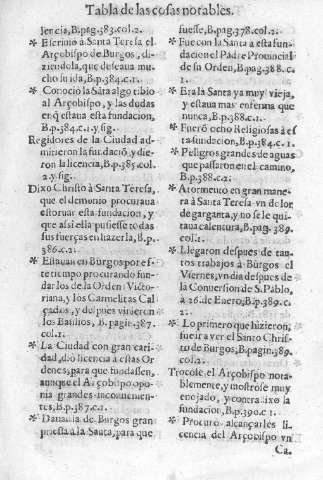 Tabla de las cosas notables.
lencia, B.pag.383.col.2.
* Escriuio à Santa Teresa el
Arçobispo de Burgos, di-
ziendola, que deseaua mu-
cho su ida, B.p.384.c.1.
* Conociò la Sãta algo tibio
al Arçobispo, y las dudas
en q̃ estaua esta fundacion,
B.p.384.c.1. y sig.
Regidores de la Ciudad ad-
mitieron la fundaciõ, y die-
ron la licencia, B.p.385.col.
2. y sig.
Dixo Christo à Santa Teresa,
que el demonio procuraua
estoruar esta fundacion, y
que assi ella pusiesse todas
sus fuerças en hazerla, B.p.
386.c.2.
* Estauan en Burgos por es-
te tiempo procurando fun-
dar los de la Orden Victo-
riana, y los Carmelitas Cal
çados, y despues vinieron
los Basilios, B. pag. 387.
col.1.
* La Ciudad con gran cari-
dad, diò licencia à estas Or
denes, para que fundassen,
aunque el Arçobispo opo-
nia grandes inconuenien-
tes, B.p.387.c.2.
* Dauanla de Burgos gran
priessa à la Santa, para que
fuesse, B.pag.378.col.2.
* Fue con la Santa à esta fun-
dacion el Padre Prouincial
de su Orden, B.pag.388.c.
1.
* Era la Santa ya muy vieja,
y estaua mas enferma que
nunca, B.p.388.c.1.
* Fuerõ ocho Religiosas à es
ta fundacion, B.p.384.c.1.
* Peligros grandes de aguas
que passaron en el camino,
B.p.388.c.2.
* Atormentò en gran mane-
ra à Santa Teresa vn dolor
de garganta, y no se le qui-
taua calentura, B.pag.389.
col.1.
* Llegaron despues de tan-
tos trabajos à Burgos el
Viernes, vn dia despues de
la Conuersion de S. Pablo,
à 26. de Enero, B.p.389.c.
2.
* Lo primero que hizieron,
fue ir a ver el Santo Chris-
to de Burgos, B.pagin.389.
col.2.
Trocose el Arçobispo nota-
blemente, y mostrose muy
enojado, y contradixo la
fundacion, B.p.390.c.1.
* Procurò alcançarles li-
cencia del Arçobispo vn
Ca.